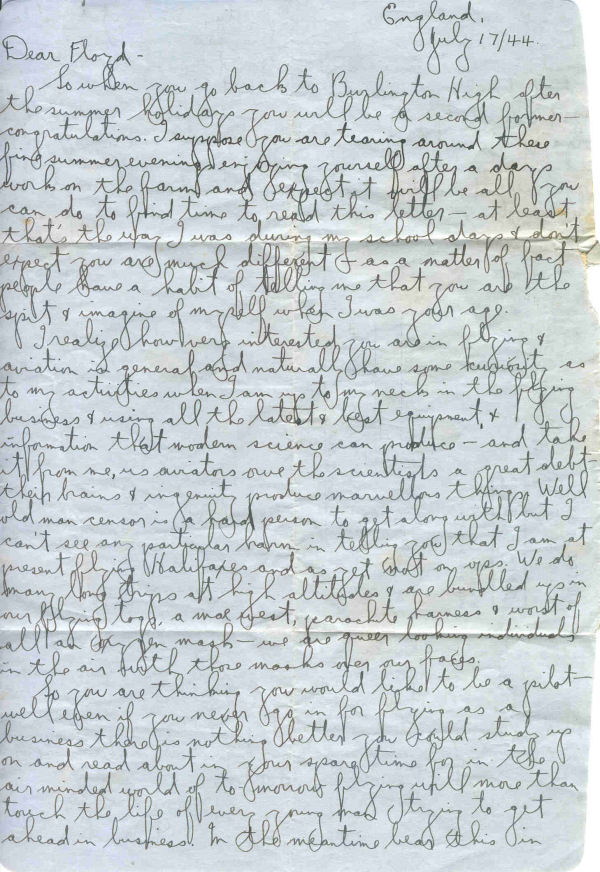 England,
July 17/44.
Dear Floyd -
So when you go back to Burlington High after
the summer holidays you will be a second former -
congratulations. I suppose you are tearing around these
fine summer evenings enjoying yourself after a days
work on the farm and I expect it will be all you
can do to find time to read this letter - at least
that's the way I was during my school days & don't
expect you are much different - as a matter of fact
people have a habit of telling me that you are the
spit & imagine of myself when I was your age.
I realize how very interested you are in flying &
aviation in general and naturally have some curiosity as
to my activities when I am up to my neck in the flying
business & using all the latest & best equipment &
information that modern science can produce - and take
it from me, us aviators owe the scientists a great debt -
their brains & ingenuity produce marvellous things. Well
old man censor is a hard person to get along with but I
can't see any particular harm in telling you that I am at
present flying Halifaxes and as yet not on ops. We do
many long trips at high altitudes & are bundled up in
our flying togs, a mae west, parachute harness & worst of
all an oxygen mask - we are queer looking individuals
in the air with those masks over our faces.
So you are thinking you would like to be a pilot -
well even if you never go in for flying as a
business there is nothing better you could study up
on and read about in your spare time for in the
air minded world of to-morrow flying will more than
touch the life of every young man trying to get
ahead in business. In the meantime bear this in